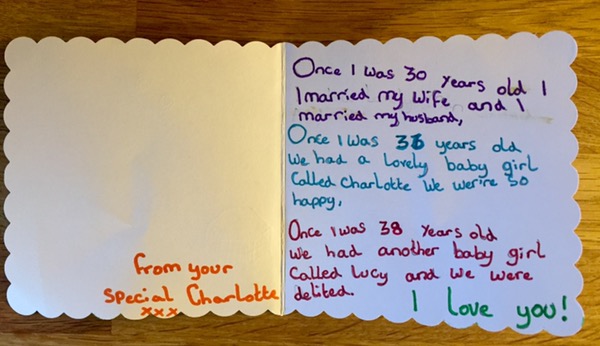 from your
special Charlotte
xxx
Once I was 30 years old I
Imarried my wife and I
married my husband,
Once I was 36 years old
we had a lovely baby girl
Called Charlotte we wer're so
happy,
Once I was 38 years old
we had another baby girl
Called Lucy and we were
delited.
I love you!